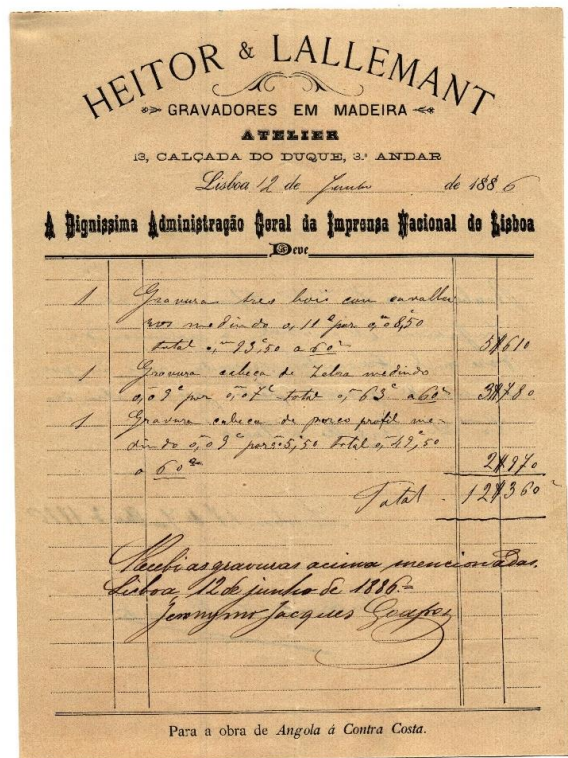 HEITOR & LALLEMANT
GRAVADORES EM MADEIRA
ATELIER
13, CALÇADA DO DUQUE, 3.º ANDAR
Lisboa 12 de Junho de 1886
A Dignissima Administração Geral da Imprensa Nacional de Lisboa
Deve
1 Gravura tres bois com cavallei
ros medindo 0,11º por 0,º08,50
total 0,º93,50 a 60 5$610
1 Gravura cabeça de Zebra medindo
0,09º por 0,º07º total 0,63º a 60 3$780
1 Gravura cabeça de porco profil me-
dindo 0,09º por 5,50 total 0,49,50
a 60 2$970
Total 12$360
Recebi as gravuras acima mencionadas.
Lisboa 12 de junho de 1886
Jeronymo Jacques
Para a obra de Angola á Contra Costa.